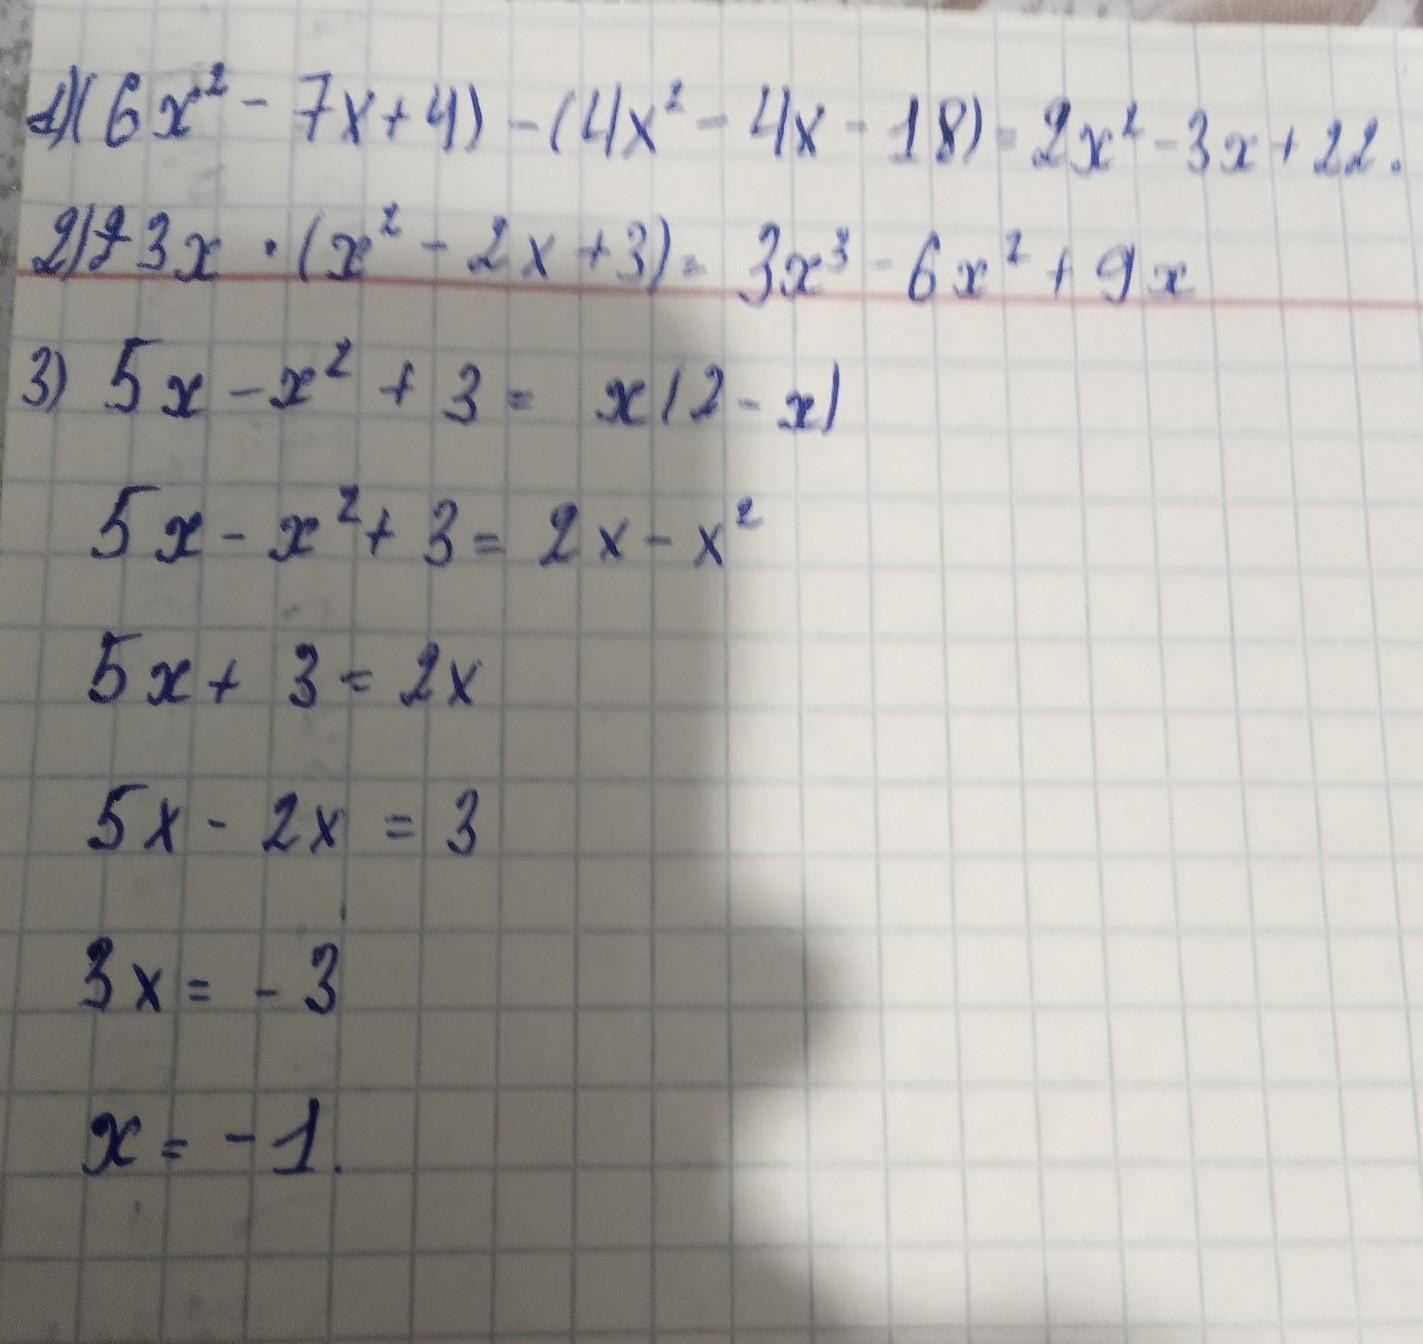 1)(6x² - 7x + 4) - (4x² - 4x - 18) = 2x² - 3x + 22.
2) 3x · (x² - 2x + 3) = 3x³ - 6x² + 9x
3) 5x - x² + 3 = x(2 - x)
5x - x² + 3 = 2x - x²
5x + 3 = 2x
5x - 2x = 3
3x = - 3
x = - 1.